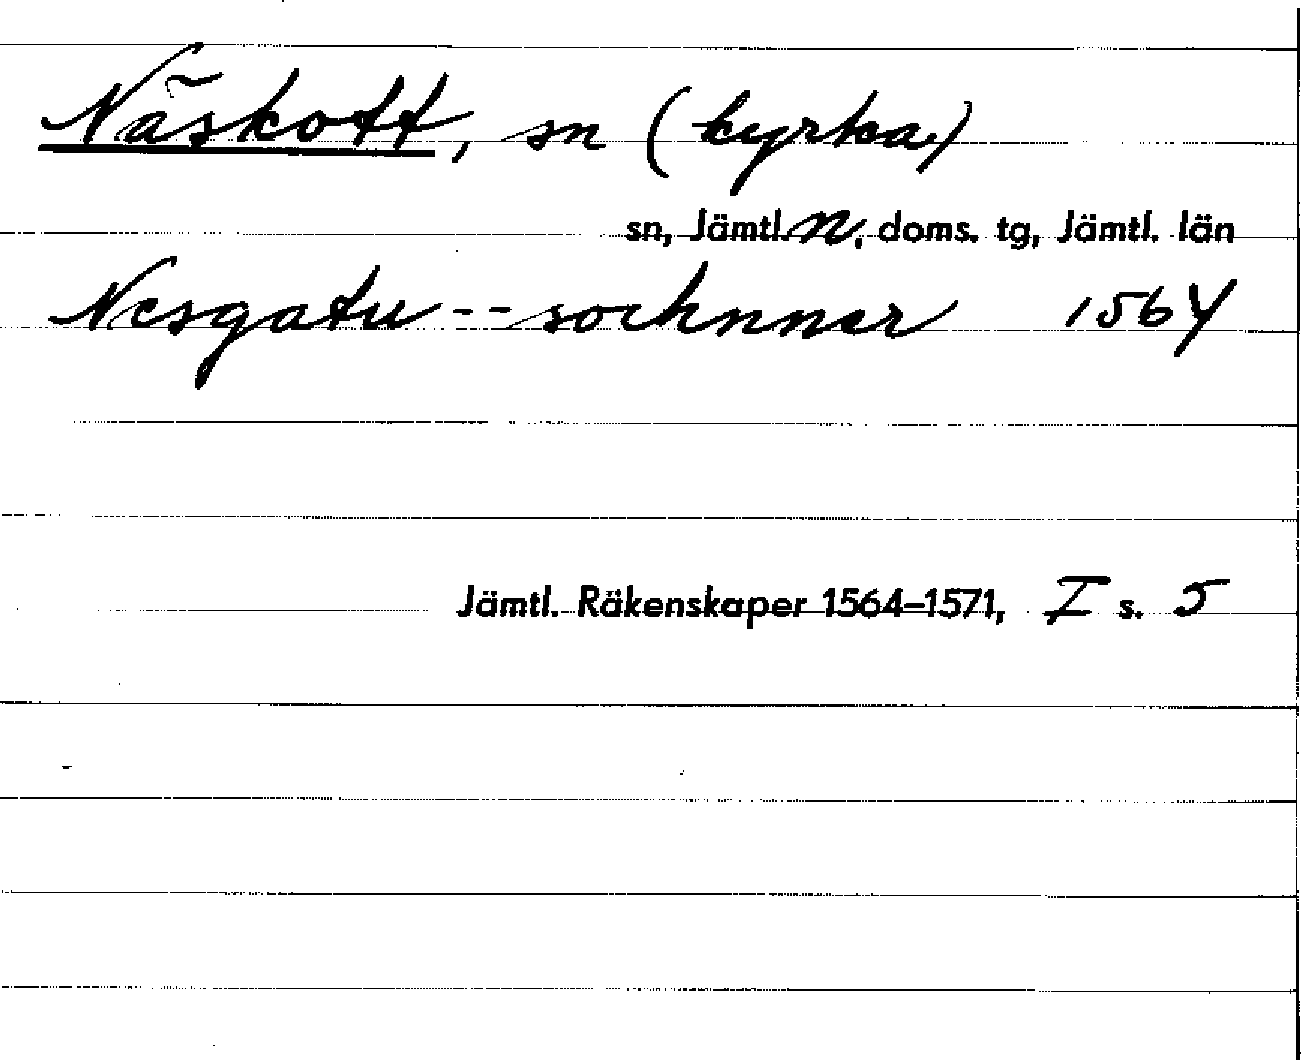 Näskott, sn (kyrka)
sn, Jämtl. n. doms. tg, Jämtl. län
Nesgatu -- sochnner 1564
Jämtl. Räkenskaper 1564–1571, I s. 5